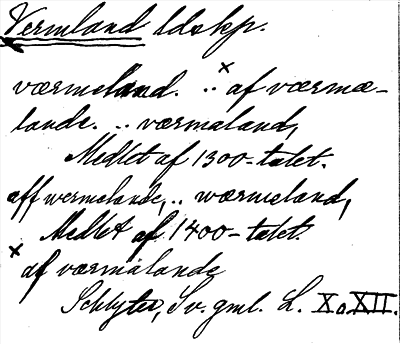 Vermland ldskp.
værmeland. .. x af værmæ-
lande. .. værmaland,
Medlet af 1300-talet.
aff wermelande, .. wærmeland,
Medlet af 1400-talet.
x af værmalande
Schlyter, Sv. gml. L. X o. XII.